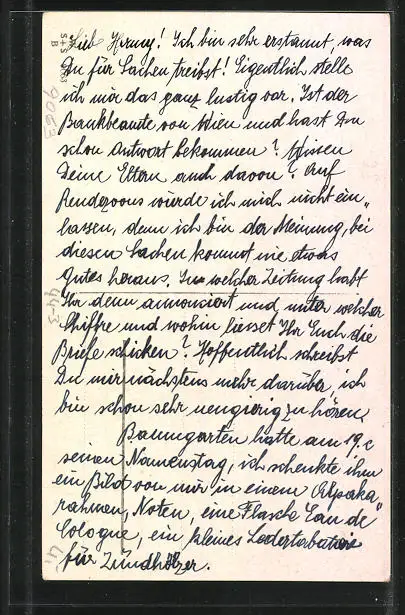 Lieb Hermy! Ich bin sehr erstaunt, was
Du für Sachen treibst! Eigentlich stelle
ich mir das ganz lustig vor. Ist der
Bankbeamte von Wien und hast Du
schon Antwort bekommen? Wissen
Deine Eltern auch davon? Auf
Rendezvous würde ich mich nicht ein„
lassen, denn ich bin der Meinung, bei
diesen Sachen kommt nie etwas
gutes heraus. In welcher Zeitung habt
Ihr denn annonciert und unter welcher
Chiffre und wohin liesset Ihr Euch die
Briefe schicken? Hoffentlich schreibst
Du mir nächstens mehr darüber, ich
bin schon sehr neugierig zu hören.
Baumgarten hatte am 19. c
seinen Namenstag, ich schenkte ihm
ein Bild von mir in einem Alpaka„
rahmen, Noten, eine Flasche Eau de
Cologne, ein kleines
für Zündhölzer.
9063
44-3